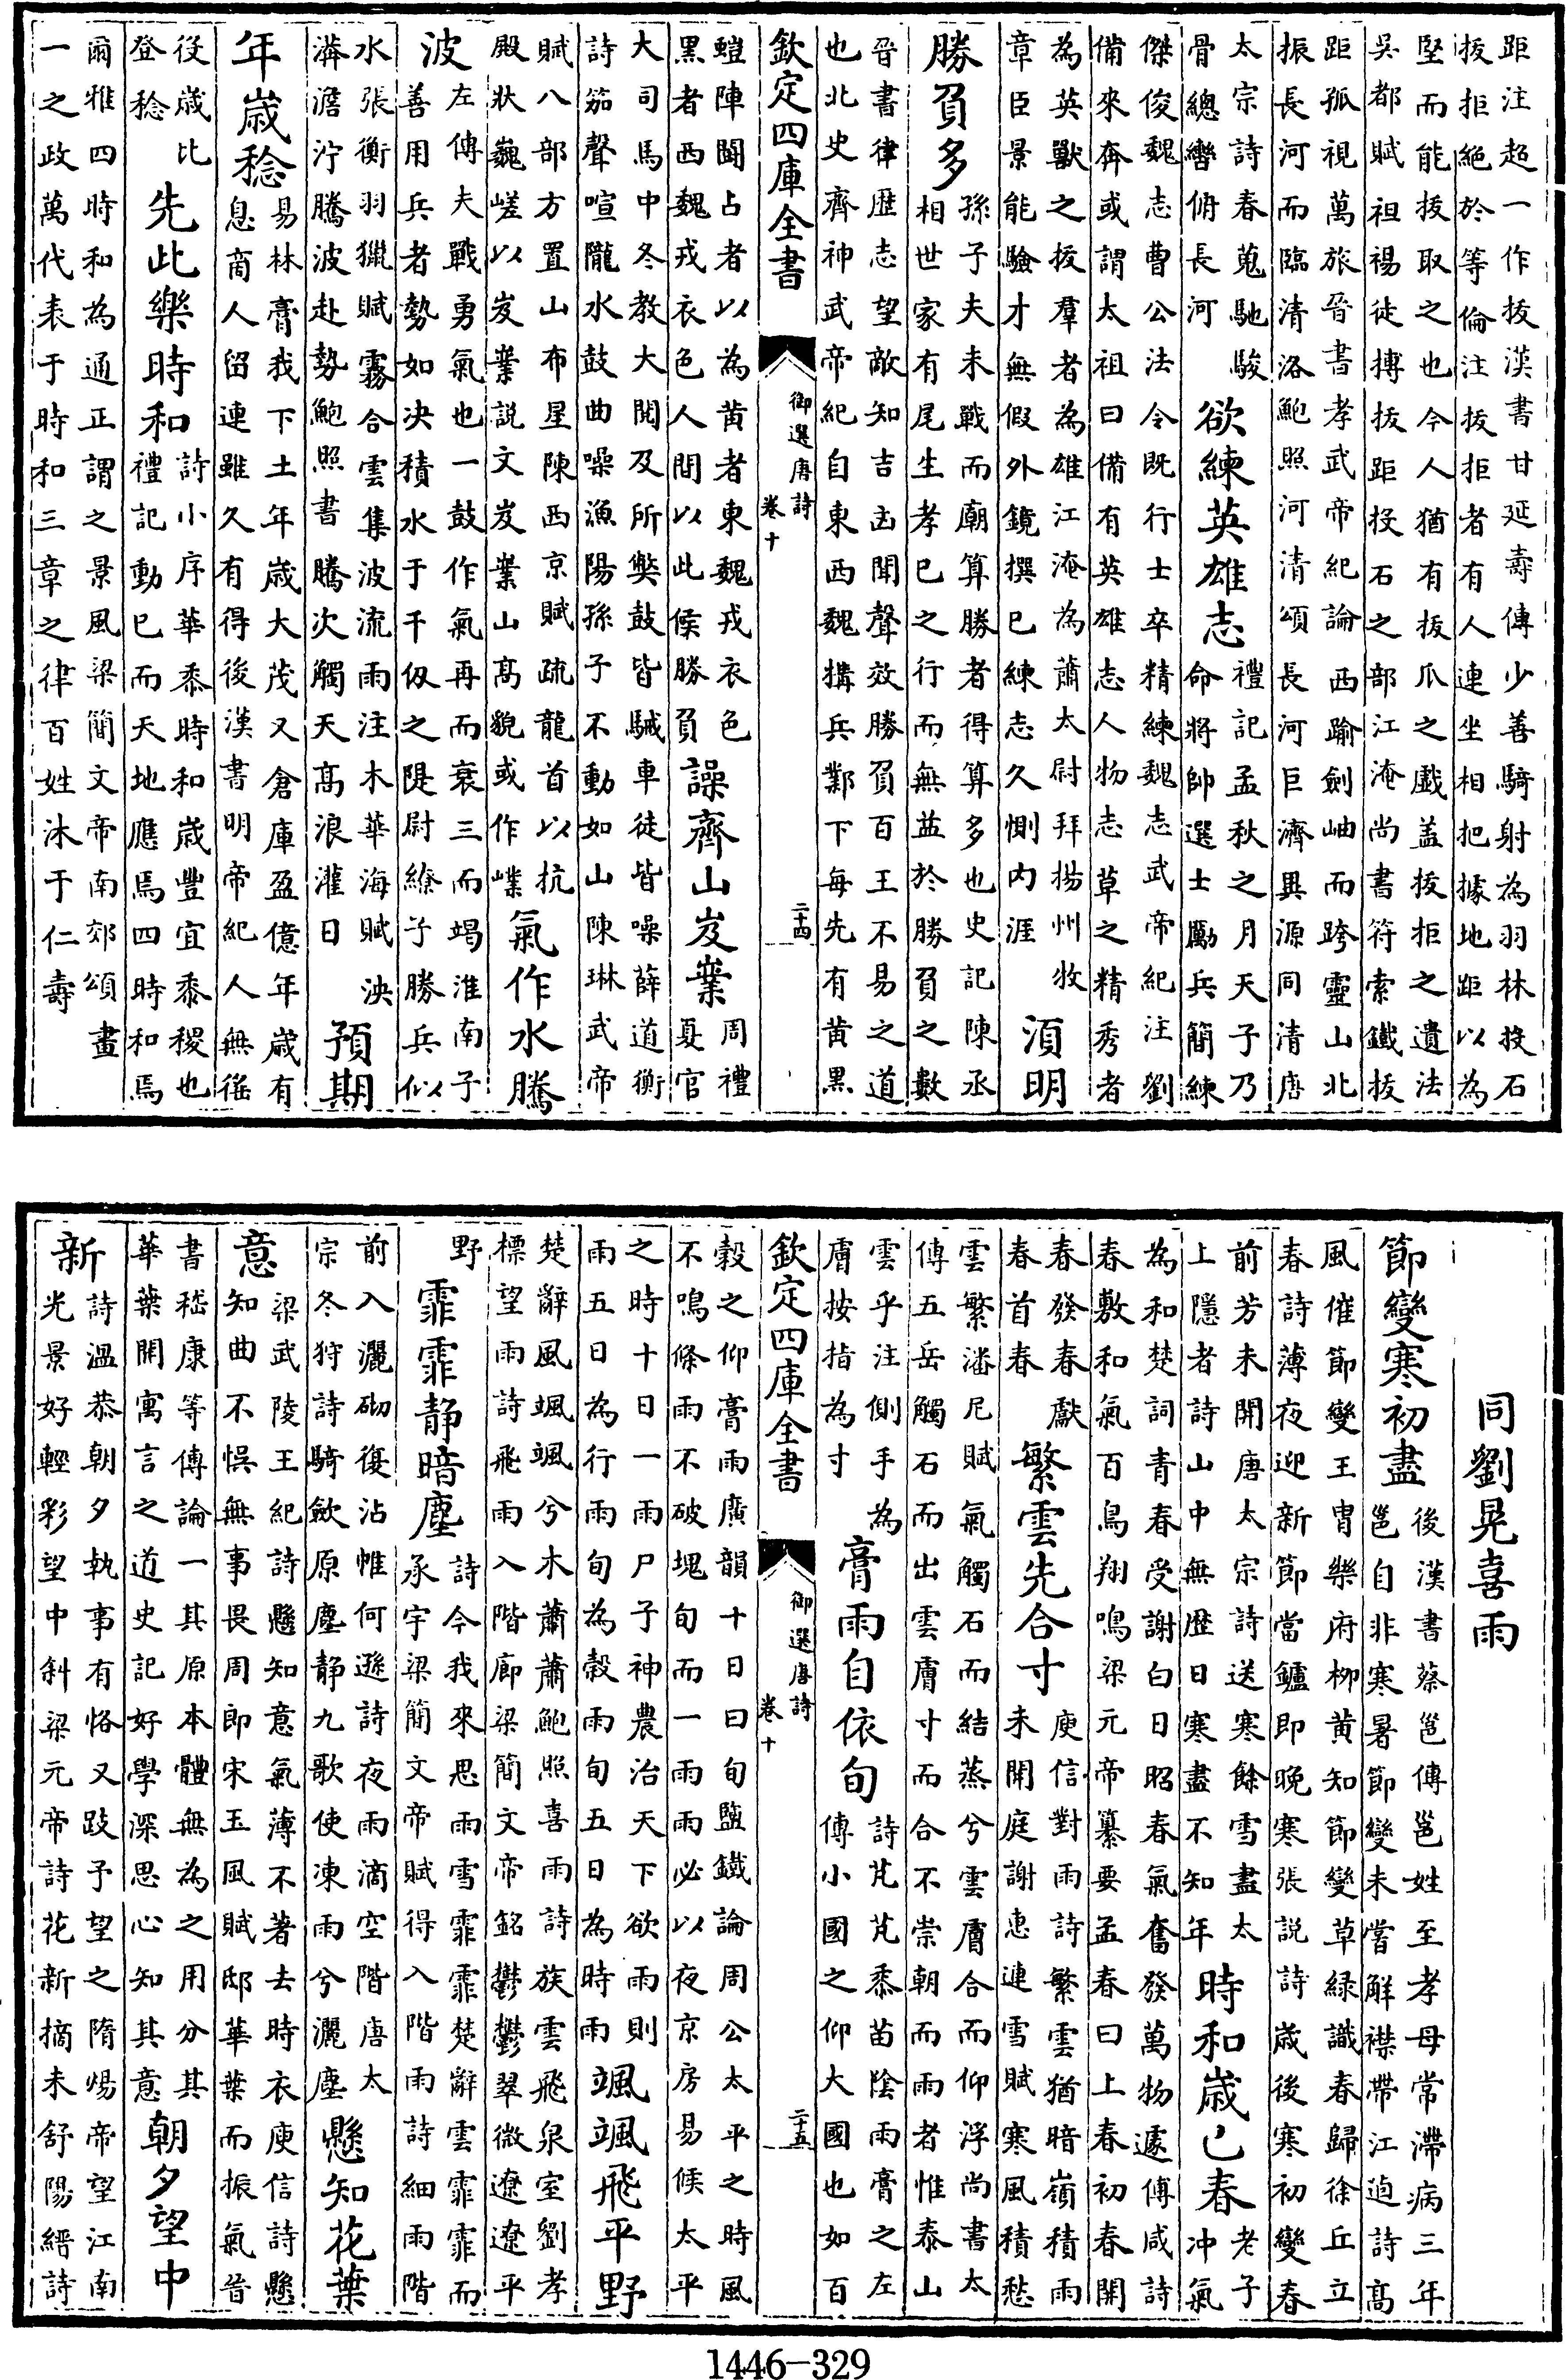 距注超一作㧞漢書甘延壽傳少善騎射為羽林投石
㧞拒絶於等倫注㧞拒者有人連坐相把據地距以為
堅而能㧞取之也今人猶有㧞爪之戲盖㧞拒之遺法
吳都賦袒裼徒搏㧞距投石之部江淹尚書符索鐵㧞
距孤視萬旅晉書孝武帝紀論西踰劍岫而跨靈山北
振長河而臨清洛鮑照河清頌長河巨濟異源同清唐
太宗詩春蒐馳駿
骨總轡俯長河
欲練英雄志
禮記孟秋之月天子乃
命將帥選士勵兵簡練
傑俊魏志曹公法令既行士卒精練魏志武帝紀注劉
備來奔或謂太祖曰備有英雄志人物志草之精秀者
為英獸之㧞羣者為雄江淹為蕭太尉拜揚州牧
章臣景能驗才無假外鏡撰已練志久惻内涯
湏明
勝負多
孫子夫未戰而廟算勝者得算多也史記陳丞
相世家有尾生孝已之行而無益於勝負之數
晉書律歴志望敵知吉凶聞聲效勝負百王不易之道
也北史齊神武帝紀自東西魏搆兵鄴下每先有黄黒
欽定四庫全書
御選唐詩
卷十
二十四
螘陣鬭占者以為黄者東魏戎衣色
黒者西魏戎衣色人間以此候勝負
譟齊山岌嶪
周禮
夏官
大司馬中冬教大閲及所獘鼓皆駴車徒皆噪薛道衡
詩笳聲喧隴水鼓曲噪漁陽孫子不動如山陳琳武帝
賦八部方置山布星陳西京賦疏龍首以抗
殿狀巍嵯以岌嶪説文岌嶪山高貌或作㠎
氣作水騰
波
左傳夫戰勇氣也一鼓作氣再而衰三而竭淮南子
善用兵者勢如决積水于千仭之隄尉繚子勝兵似
水張衡羽獵賦霧合雲集波流雨注木華海賦泱
漭澹泞騰波赴勢鮑照書騰次觸天高浪灌日
預期
年歳稔
易林膏我下土年歳大茂又倉庫盈億年歳有
息商人留連雖久有得後漢書明帝紀人無徭
役歳比
登稔
先此樂時和
詩小序華黍時和歳豐宜黍稷也
禮記動已而天地應焉四時和焉
爾雅四時和為通正謂之景風梁簡文帝南郊頌畫
一之政萬代表于時和三章之律百姓沐于仁壽
同劉晃喜雨
節變寒初盡
後漢書蔡邕傳邕姓至孝母常滯病三年
邕自非寒暑節變未嘗解襟帶江逌詩高
風催節變王胄樂府柳黄知節變草緑識春歸徐丘立
春詩薄夜迎新節當鑪即晚寒張説詩歳後寒初變春
前芳未開唐太宗詩送寒餘雪盡太
上隱者詩山中無歴日寒盡不知年
時和歳已春
老子
冲氣
為和楚詞青春受謝白日昭春氣奮發萬物遽傅咸詩
春敷和氣百鳥翔鳴梁元帝纂要孟春曰上春初春開
春發春獻
春首春
繁雲先合寸
庾信對雨詩繁雲猶暗嶺積雨
未開庭謝惠連雪賦寒風積愁
雲繁潘尼賦氣觸石而結蒸兮雲膚合而仰浮尚書太
傳五岳觸石而出雲膚寸而合不崇朝而雨者惟泰山
雲乎注側手為
膚按指為寸
膏雨自依旬
詩芃芃黍苗陰雨膏之左
傳小國之仰大國也如百
欽定四庫全書
御選唐詩
卷十
二十五
榖之仰膏雨廣韻十日曰旬鹽鐵論周公太平之時風
不鳴條雨不破塊旬而一雨雨必以夜京房易候太平
之時十日一雨雨尸子神農治天下欲雨則
雨五日為行雨旬為榖雨旬五日為時雨
颯颯飛平野
楚辭風颯颯兮木蕭蕭鮑照喜雨詩族雲飛泉室劉孝
標望雨詩飛雨入階廊梁簡文帝銘鬱鬱翠微遼遼平
野
霏霏静暗塵
詩今我來思雨雪霏霏楚辭雲霏霏而
承宇梁簡文帝賦得入階雨詩細雨階
前入灑砌復沾惟何遜詩夜雨滴空階唐太
宗冬狩詩騎歛原塵静九歌使凍雨兮灑塵
懸知花葉
意
梁武陵王紀詩懸知意氣薄不著去時衣庾信詩懸
知曲不悞無事畏周郎宋玉風賦邸華葉而振氣昔
書嵇康等傳論一其原本體無為之用分其
華葉開寓言之道史記好學深思心知其意
朝夕望中
新
詩溫恭朝夕執事有恪又跂予望之隋煬帝望江南
光景好輕彩望中斜梁元帝詩花新摘未舒陽縉詩